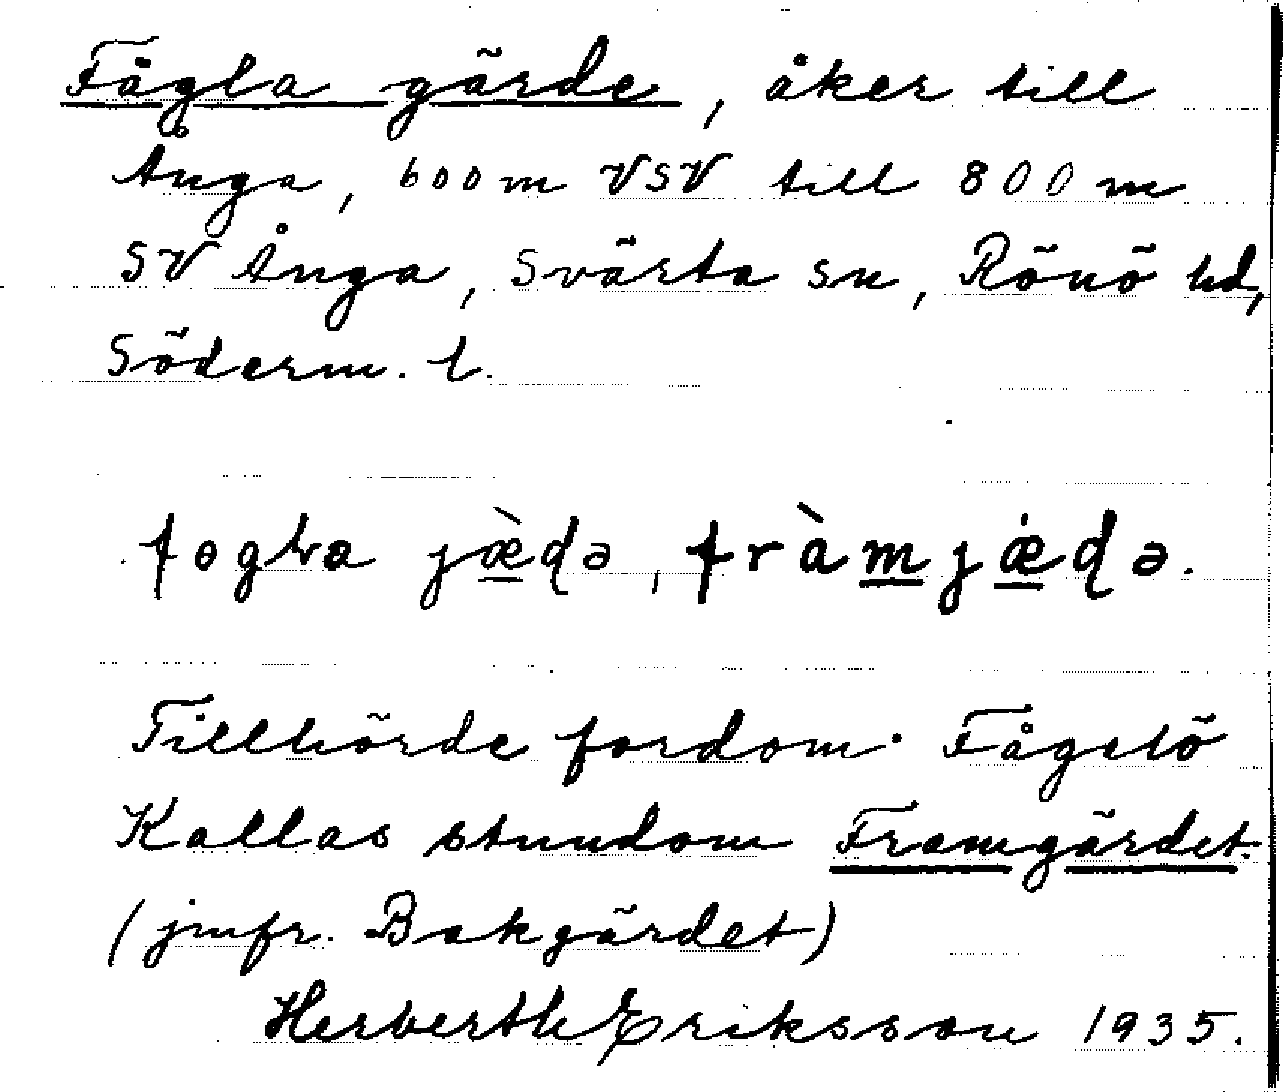 Fågla gärde, åker till
Ånga, 600 m VSV till 800 m
SV Ånga, Svärta sn, Rönö hd,
Söderm. l.
fogla jæ̀ɖə, fràmjæ̇ɖə.
Tillhörde fordom Fågelö
Kallas stundom Framgärdet.
(jmfr. Bakgärdet)
Herberth Eriksson 1935.